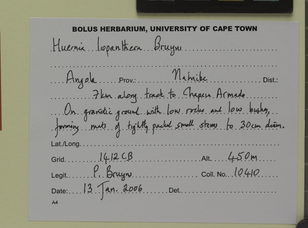 BOLUS HERBARIUM, UNIVERSITY OF CAPE TOWN
Huernia lopanthera Bruyns
Angola Prov.: Namibe Dist.:
7km along track to Chapeu Armado
On granitic ground with low rocks and low bushes,
forming mats of tightly packed small stems to 30cm diam.
Lat./Long.
Grid. 1412CB Alt. 450m
Legit. P. Bruyns Coll. No. 10410
Date: 13 Jan. 2006 Det.
A4